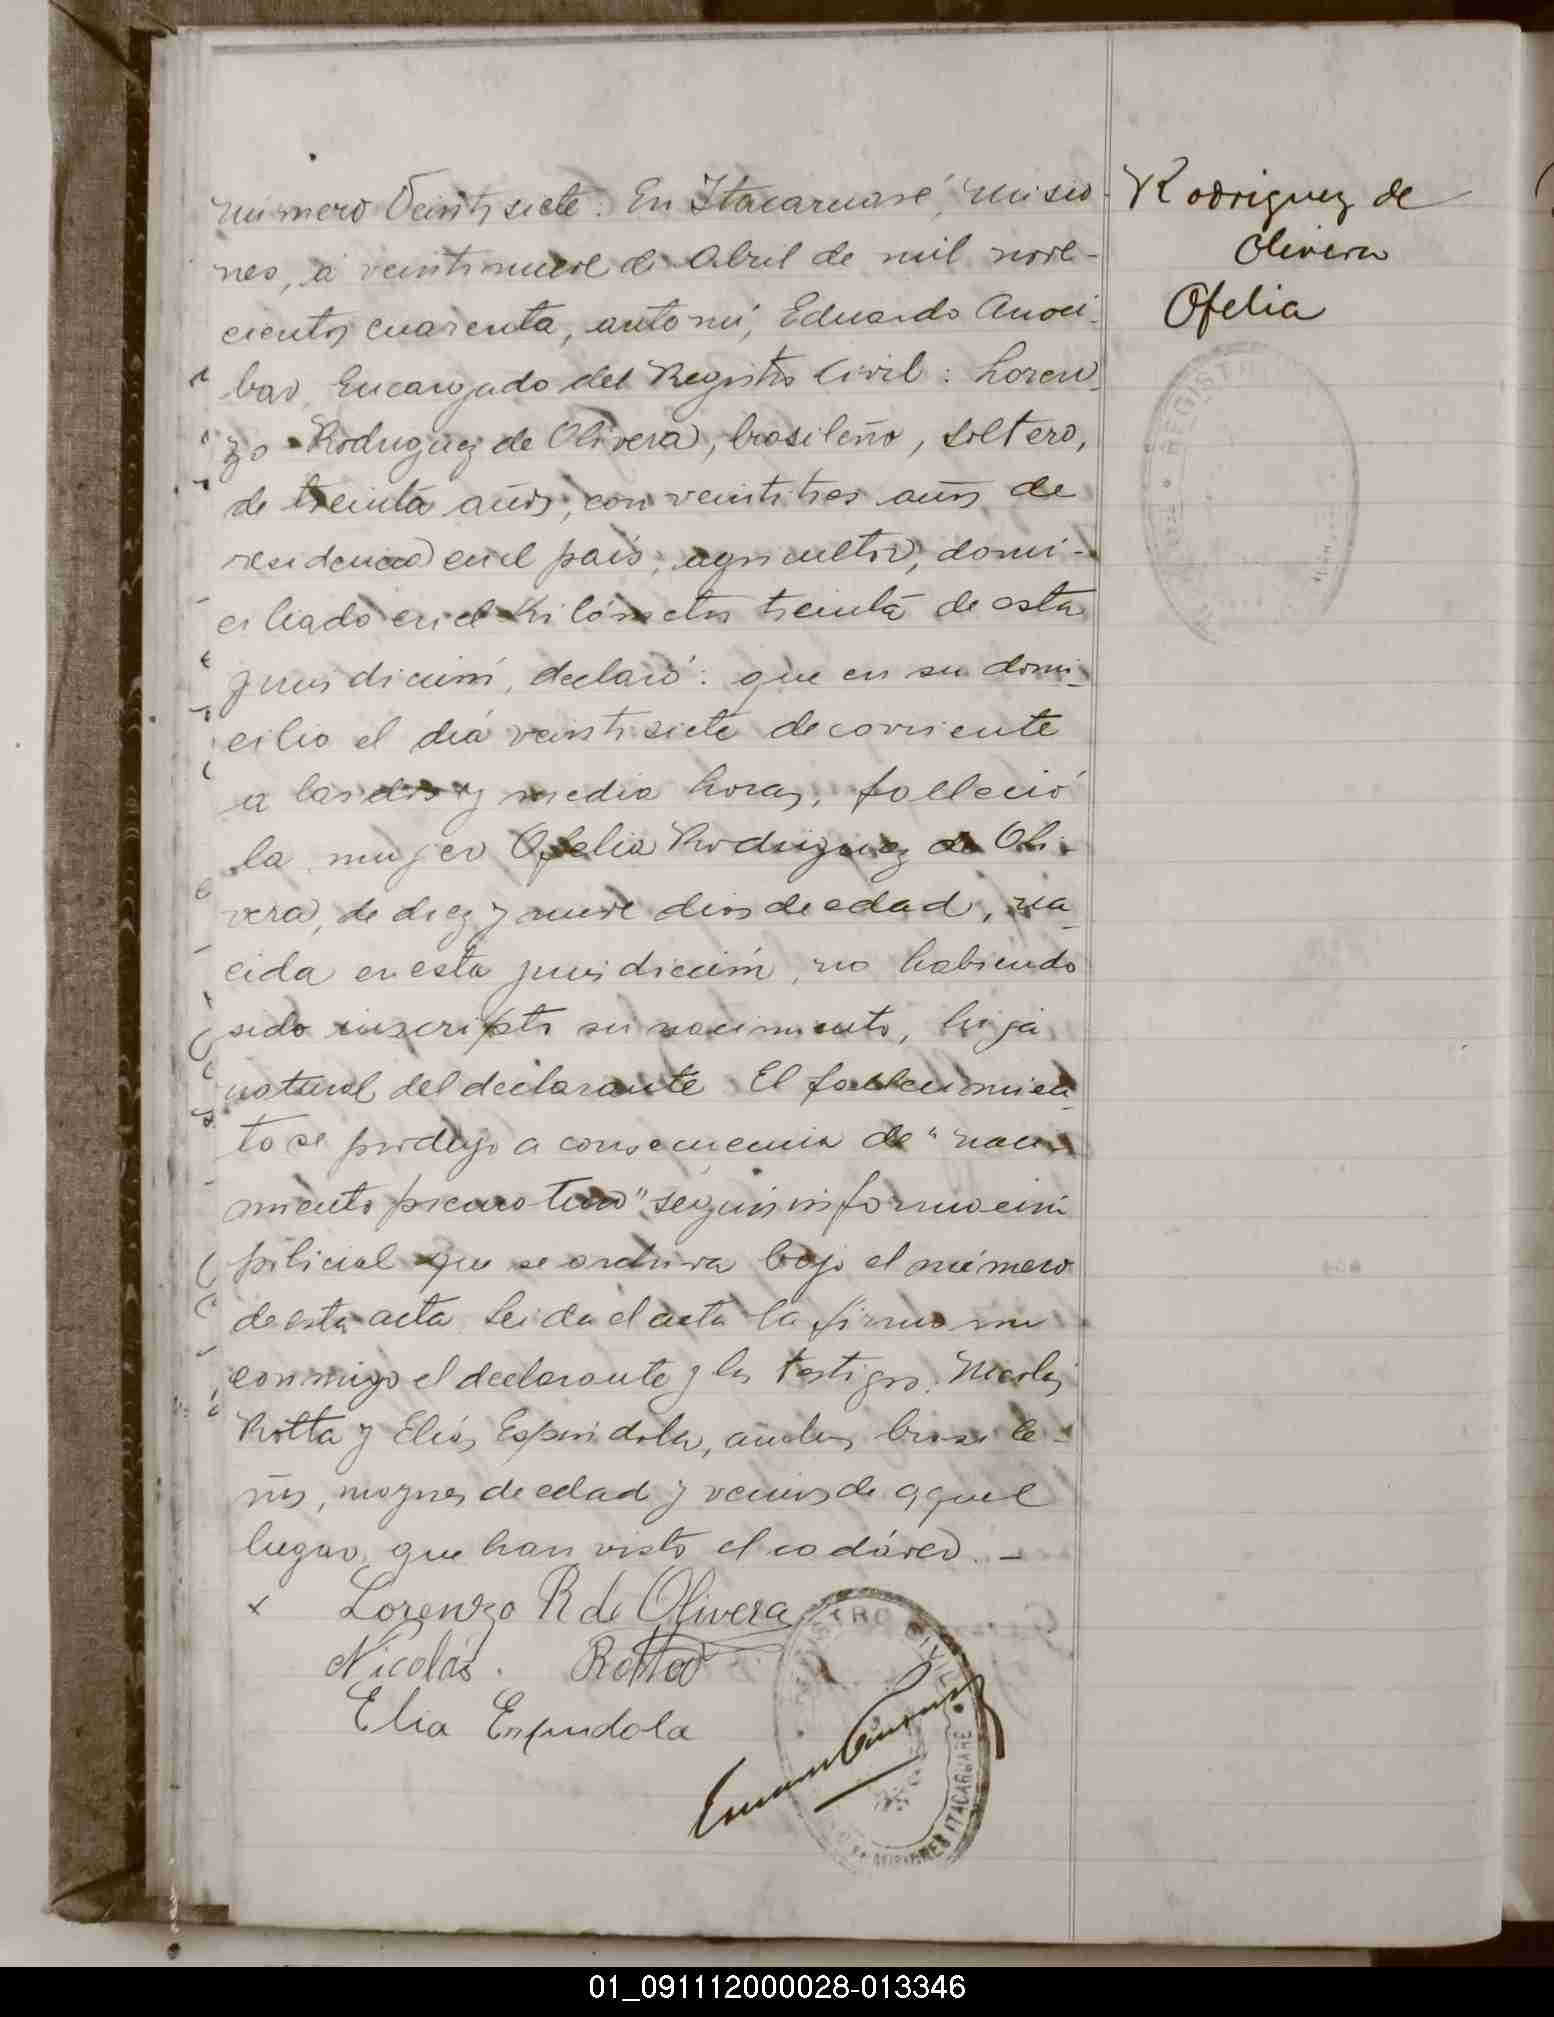 número Veintisiete. En Itacaruaré, Misio-
nes, a veintinueve de Abril de mil nove-
cientos cuarenta, ante mí, Eduardo
Encargado del Registro Civil: Loren-
zo Rodriguez de Olivera, brasileño, soltero,
de treinta años, con veintitres años de
residencia en el país, agricultor, domi-
ciliado en el Kilómetro treinta de esta
jurisdicción, declaró: que en su domi-
cilio el día veintisiete de corriente
a las dos y media horas, falleció
la mujer Ofelia Rodriguez de Oli-
vera, de diez y nueve dias de edad, na-
cida en esta jurisdicción, no habiendo
sido inscripto su nacimiento, hija
natural del declarante. El fallecimien-
to se produjo a consecuencia de "naci-
miento prematuro" según información
policial que se archiva bajo el número
de esta acta. Leida el acta la firma
conmigo el declarante y los testigos: Nicolás
Rotta y Elías Espindola, ambos brasile-
ños, mayores de edad y vecinos de aquel
lugar, que han visto el cadáver. —
x Lorenzo R de Olivera
Nicolás. Rotta
Elia Espindola
REGISTRO CIVIL
MISIONES ITACARUARE
Rodriguez de
Olivera
Ofelia
REGISTR
01_091112000028-013346